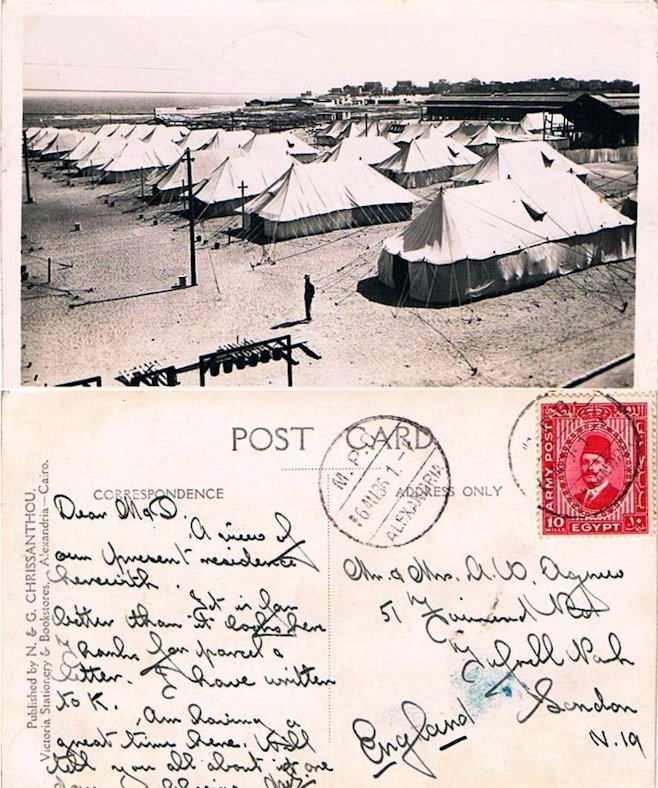 POST CARD
CORRESPONDENCE
ADDRESS ONLY
Published by N. & G. CHRISSANTHOU,
Victoria Stationery & Bookstores, Alexandria – Cairo.
Dear M & D.
A view of
our present residence
herewith.
It is far
better than it looks here
Thanks for parcel &
letter. I have written
to K.
Am having a
great time here. Will
tell you all about it one
M.P.O.
ALEXANDRIA
ARMY POST
10
MILLS
EGYPT
Mr. & Mrs. A. W. Agnew
51
Tufnell Park
London
N.19
England